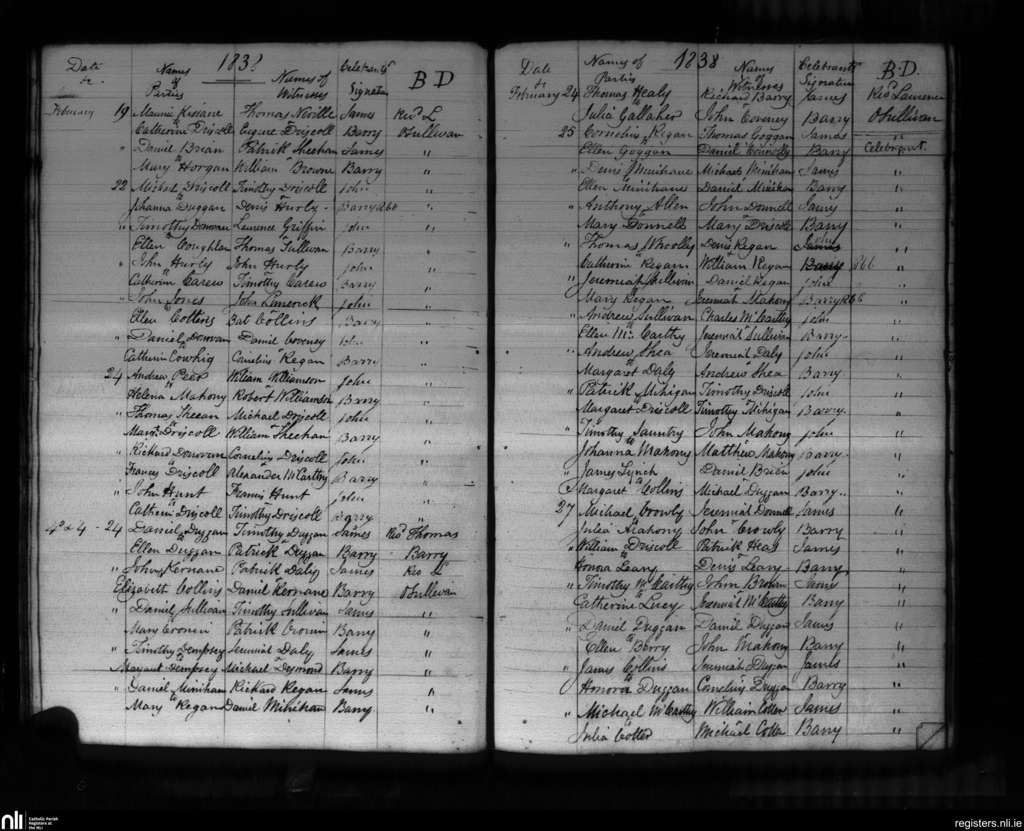 Date
&c
Names
of
Parties
183
Names of
Witnesses
Celebrants
Signature
B D
February 19 Kissane Thomas Neville James Revd L
Catherine Driscoll Eugene Driscoll Barry O'Sullivan
" Daniel Brien Patrick Sheehan James "
Mary Horgan William Browne Barry "
22 Michael Driscoll Timothy Driscoll John "
Johanna Duggan Denis Hurly Barry "
" Timothy Donovan Laurence Griffin John "
Ellen Coughlan Thomas Sullivan Barry "
" John Hurly John Hurly John "
Catherine Carew Timothy Carew Barry "
" John Jones John Limerick John "
Ellen Collins Bat Collins Barry "
" Daniel Donovan Daniel Coveney John "
Catherin Cowhig Cornelius Regan Barry
24 Andrew Peer William Williamson John "
Helena Mahony Robert Williamson Barry "
" Thomas Sheean Michael Driscoll John "
Mary Driscoll William Sheehan Barry "
" Rickard Donovan Cornelius Driscoll John "
Francis Driscoll Alexander McCarthy Barry "
" John Hunt Francis Hunt John "
Catherin Driscoll Timothy Driscoll Barry "
4th & 4 - 24 Daniel Duggan Timothy Duggan James Revd Thomas
Ellen Duggan Patrick Duggan Barry Barry
" John Kernane Patrick Daly James Rev L
Elizabett Collins Daniel Kernane Barry O'Sullivan
" Daniel Sullivan Timothy Sullivan James "
Mary Cronin Patrick Cronin Barry "
" Timothy Dempsey Jeremiah Daly James "
Margaret Dempsey Michael Desmond Barry "
" Daniel Minihan Rickard Regan James "
Mary Regan Daniel Minihan Barry "
Date
&c
Names of
Parties
1838
Names
of
Witnesses
Celebrants
Signature
B.D.
February 24 Thomas Healy Richard Barry James Revd Laurence
Julia Gallaher John Coveney Barry O'Sullivan
25 Cornelius Regan Thomas Goggan James "
Ellen Goggan Daniel Connolly Barry Celebrant.
" Denis Minihane Michael Minihan James "
Ellen Minihane Daniel Minihan Barry "
" Anthony Allen John Donnell James "
Mary Donnell Mary Driscoll Barry "
" Thomas Whoolly Denis Regan James "
Catherine Regan William Regan Barry "
" Jeremiah Sullivan Daniel Regan John "
Mary Regan Jeremiah Mahony Barry "
" Andrew Sullivan Charles McCarthy John "
Ellen McCarthy Jeremiah Sullivan Barry "
" Andrew Shea Jeremiah Daly John "
Margaret Daly Andrew Shea Barry "
" Patrick Mihigan Timothy Driscoll John "
Margaret Driscoll Timothy Mihigan Barry "
" Timothy John Mahony John "
Johanna Mahony Matthew Mahony Barry "
" James Lynch Daniel Brien John "
Margaret Collins Michael Duggan Barry "
27 Michael Crowly Jeremiah Donnell James "
Julia Mahony John Crowly Barry "
" William Driscoll Patrick Heas James "
Honora Leary Denis Leary Barry "
" Timothy McCarthy John Brown James "
Catherine Lucy Jeremiah McCarthy Barry "
" Daniel Duggan Daniel Duggan James "
Ellen Berry John Mahony Barry "
" James Collins Jeremiah Duggan James "
Honora Duggan Cornelius Duggan Barry "
" Michael McCarthy William Cotter James "
Julia Cotter Michael Cotter Barry "
nli Catholic Parish
Registers at
the NLI
registers.nli.ie